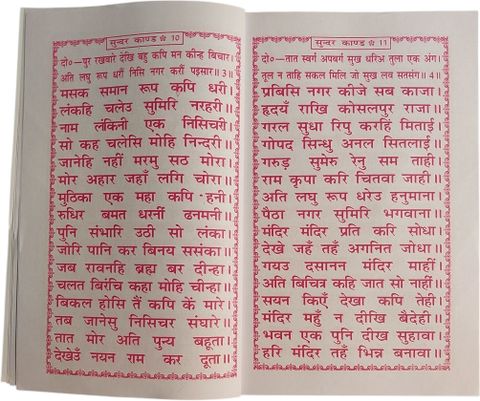 सुन्दर काण्ड ☆ 10
दो०—पुर रखवारे देखि बहु कपि मन कीन्ह बिचार।
अति लघु रूप धरौं निसि नगर करौं पइसार॥3॥
मसक समान रूप कपि धरी।
लंकहि चलेउ सुमिरि नरहरी॥
नाम लंकिनी एक निसिचरी।
सो कह चलेसि मोहि निन्दरी॥
जानेहि नहीं मरमु सठ मोरा।
मोर अहार जहाँ लगि चोरा॥
मुठिका एक महा कपि हनी।
रुधिर बमत धरनीं ढनमनी॥
पुनि संभारि उठी सो लंका।
जोरि पानि कर बिनय ससंका॥
जब रावनहि ब्रह्म बर दीन्हा।
चलत बिरंचि कहा मोहि चीन्हा॥
बिकल होसि तैं कपि कें मारे।
तब जानेसु निसिचर संघारे॥
तात मोर अति पुन्य बहूता।
देखेउँ नयन राम कर दूता॥
सुन्दर काण्ड ☆ 11
दो०—तात स्वर्ग अपबर्ग सुख धरिअ तुला एक अंग।
तूल न ताहि सकल मिलि जो सुख लव सतसंग॥4॥
प्रबिसि नगर कीजे सब काजा।
हृदयँ राखि कोसलपुर राजा॥
गरल सुधा रिपु करहिं मिताई।
गोपद सिन्धु अनल सितलाई॥
गरुड़ सुमेरु रेनु सम ताही।
राम कृपा करि चितवा जाही॥
अति लघु रूप धरेउ हनुमाना।
पैठा नगर सुमिरि भगवाना॥
मंदिर मंदिर प्रति करि सोधा।
देखे जहँ तहँ अगनित जोधा॥
गयउ दसानन मंदिर माहीं।
अति बिचित्र कहि जात सो नाहीं॥
सयन किएँ देखा कपि तेही।
मंदिर महुँ न दीखि बैदेही॥
भवन एक पुनि दीख सुहावा।
हरि मंदिर तहँ भिन्न बनावा॥